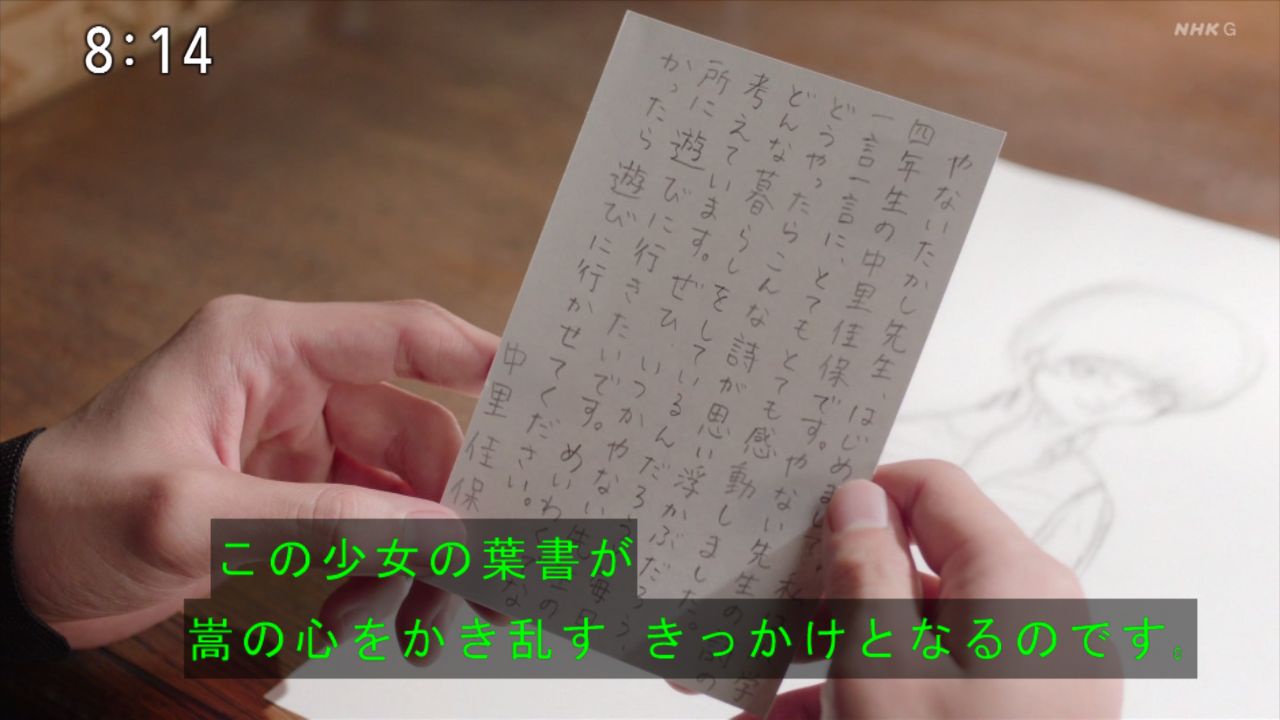 8:14
NHK G
やないたかし先生、はじめまして、私
四年生の中里佳保です。やない先生の
一言一言に、とてもとても感動しました。
どうやったらこんな詩が思い浮かぶだろう、
どんな暮らしをしているんだろう
考えています。ぜひ、いつかやない先生の
所に遊びに行きたいです。めいわくでな
かったら遊びに行かせてください。
中里佳保
この少女の葉書が
嵩の心をかき乱す きっかけとなるのです。